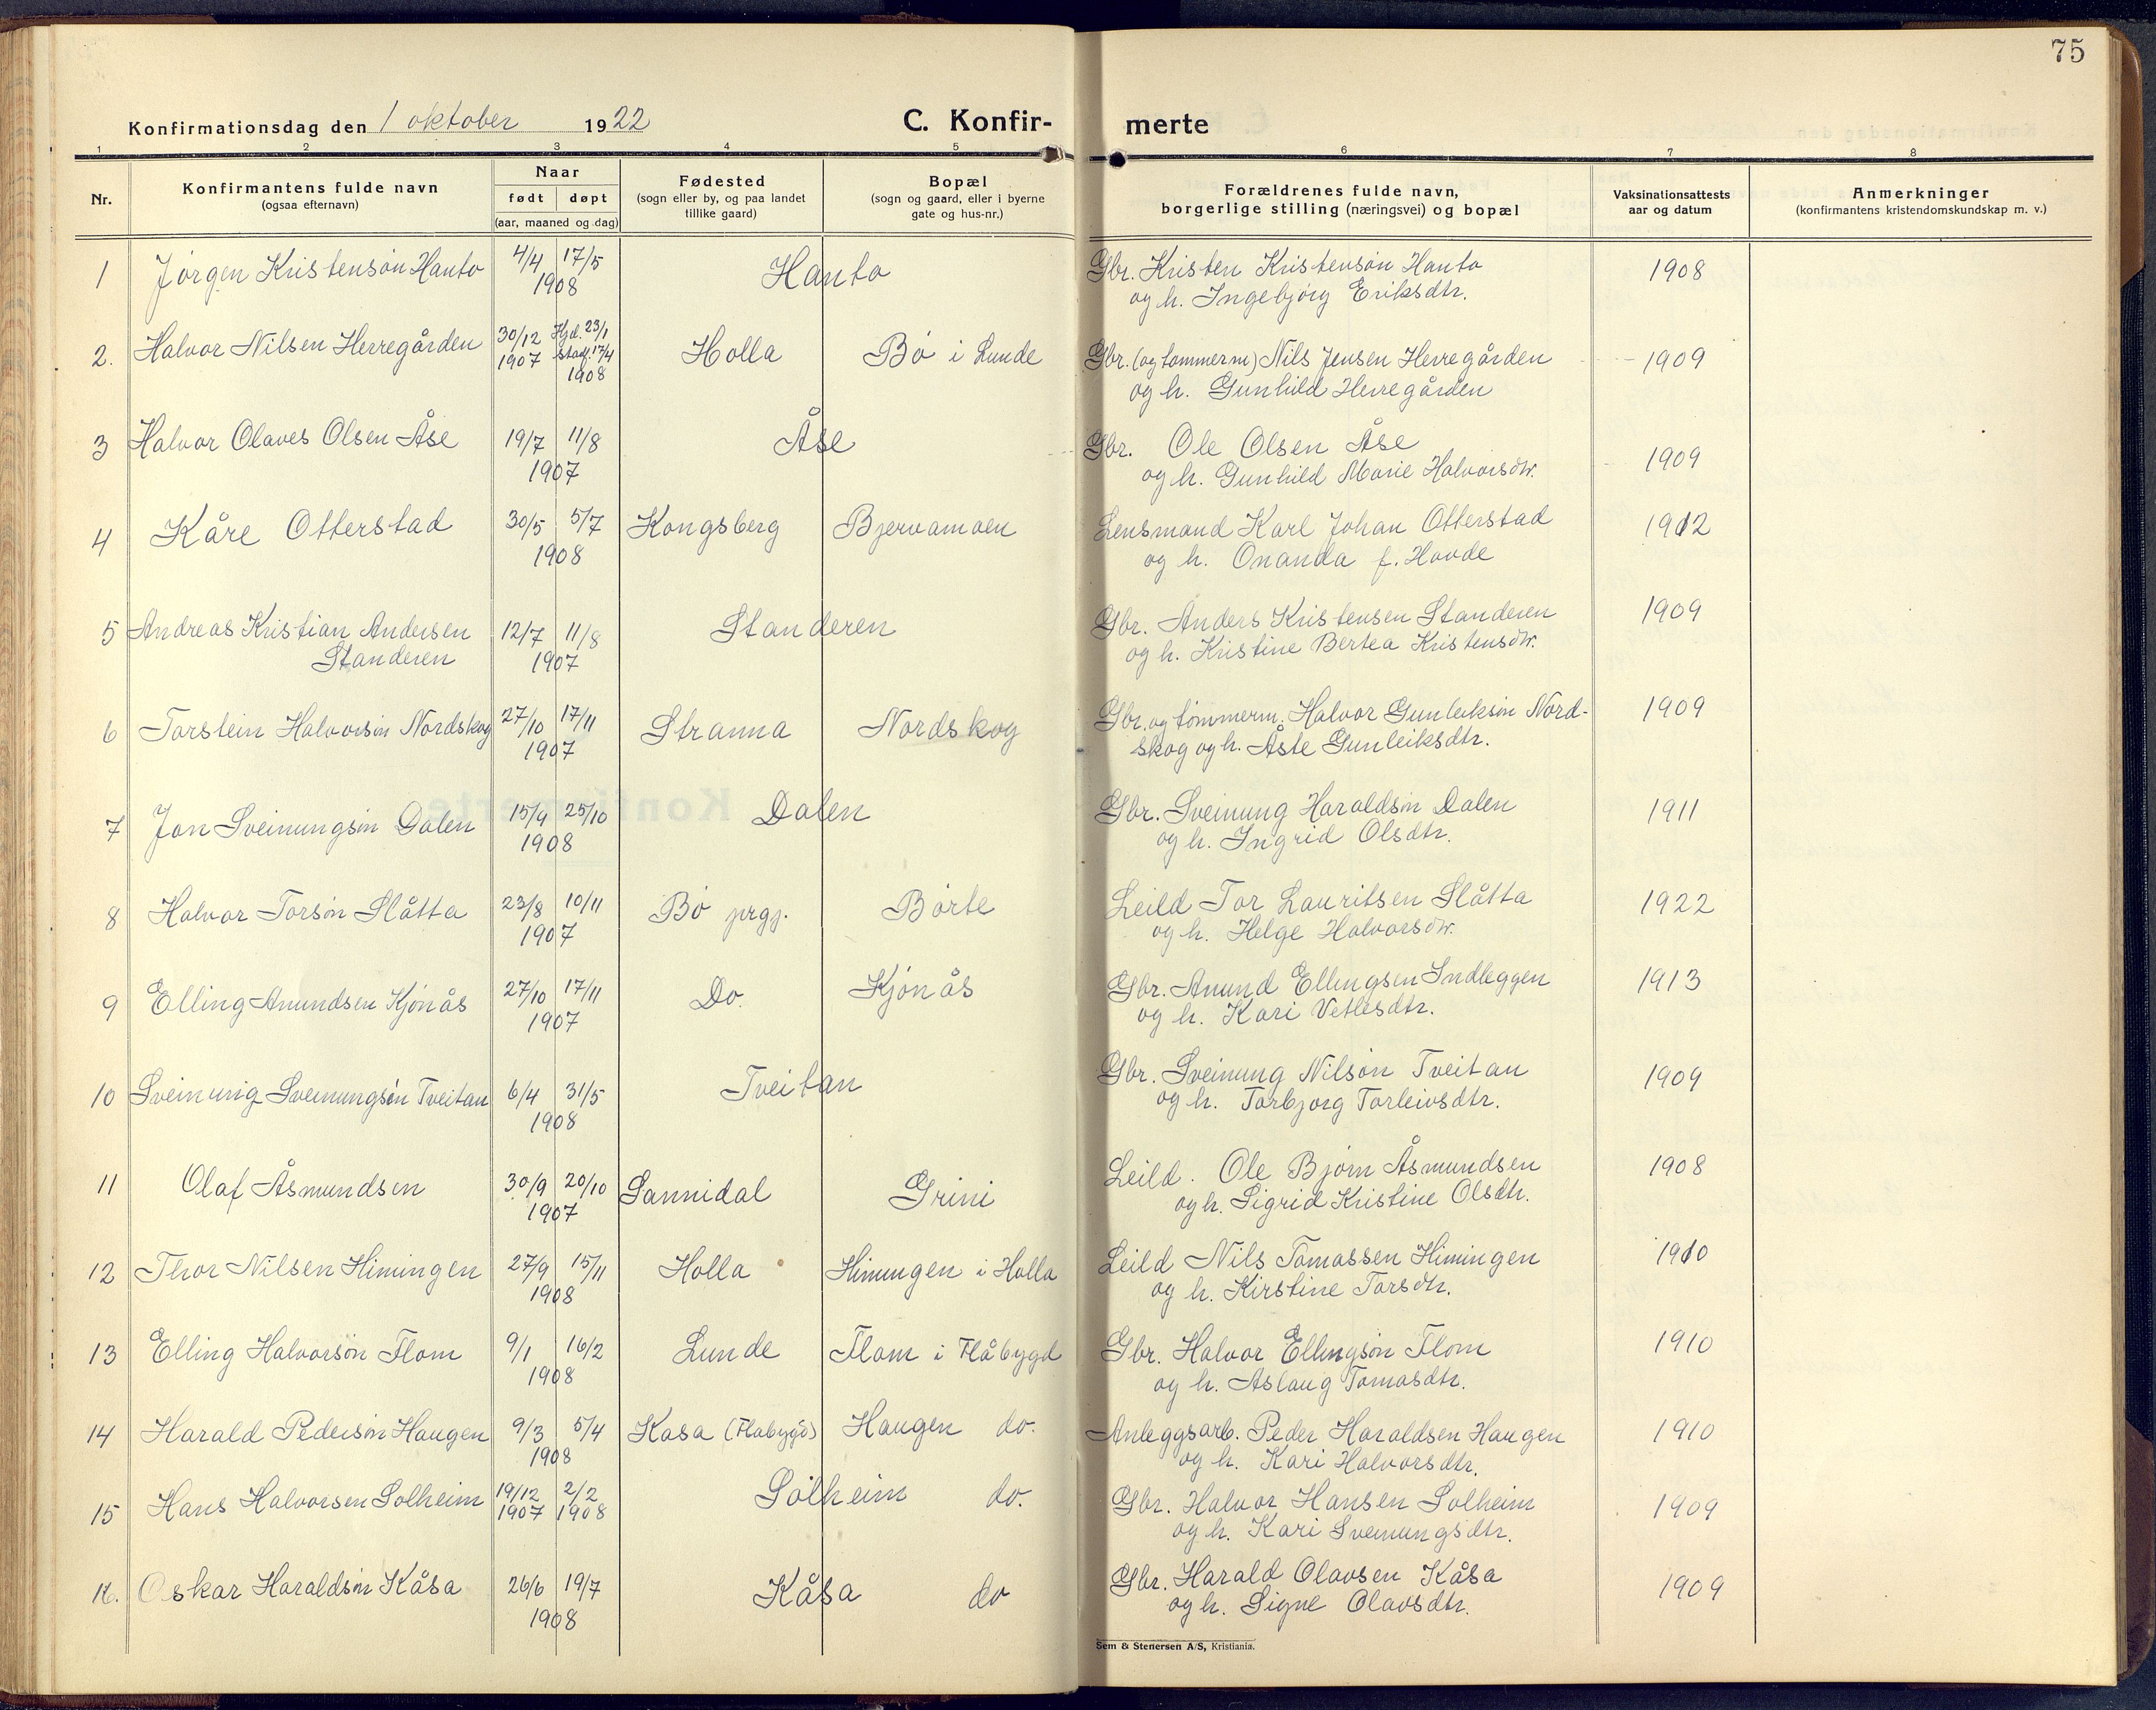 75
Konfirmationsdag den 1 oktober 1922
C. Konfir-
merte
1 2 3 4 5 6 7 8
Nr.
Konfirmantens fulde navn
(ogsaa efternavn)
Naar
født døpt
(aar, maaned og dag)
Fødested
(sogn eller by, og paa landet
tillike gaard)
Bopæl
(sogn og gaard, eller i byerne
gate og hus-nr.)
Forældrenes fulde navn,
borgerlige stilling (næringsvei) og bopæl
Vaksinationsattests
aar og datum
Anmerkninger
(konfirmantens kristendomskundskap m. v.)
1 Jørgen Kristensøn Hanto 4/4 17/5 Hanto Gbr. Kristen Kristensøn Hanto 1908
1908 og h. Ingebjørg Eriksdtr.
2. Halvor Nilsen Herregården 30/12 Hjd. 23/1 Holla Bø i Lunde Gbr. (og tømmerm) Nils Jensen Herregården 1909
1907 stadf. 17/4 og h. Gunhild Herregården
1908
3 Halvor Olaves Olsen Åse 19/7 11/8 Åse Gbr. Ole Olsen Åse 1909
1907 og h. Gunhild Marie Halvorsdtr.
4 Kåre Otterstad 30/5 5/7 Kongsberg Bjervamoen Lensmand Karl Johan Otterstad 1912
1908 og h. Onanda f. Hovde
5 Andreas Kristian Andersen 12/7 11/8 Standeren Gbr. Anders Kristensen Standeren 1909
Standeren 1907 og h. Kristine Bertea Kristensdtr.
6 Torstein Halvorsøn Nordskog 27/10 17/11 Stranna Nordskog Gbr. og tømmerm. Halvor Gunleiksøn Nord- 1909
1907 skog og h. Åste Gunleiksdtr.
7 Jon Sveinungsøn Dalen 15/9 25/10 Dalen Gbr. Sveinung Haraldsøn Dalen 1911
1908 og h. Ingrid Olsdtr.
8 Halvor Torsøn Slåtta 23/8 10/11 Bø prgj. Børte Leild Tor Lauritsen Slåtta 1922
1907 og h. Helge Halvorsdtr.
9 Elling Anundsen Kjønås 27/10 17/11 Do. Kjønås Gbr. Anund Ellingsen Indleggen 1913
1907 og h. Kari Vetlesdtr.
10 Sveinung Sveinungsøn Tveitan 6/4 31/5 Tveitan Gbr. Sveinung Nilsøn Tveitan 1909
1908 og h. Torbjørg Torleivsdtr.
11 Olaf Åsmundsen 30/9 20/10 Sannidal Grini Leild. Ole Bjørn Åsmundsen 1908
1907 og h. Sigrid Kristine Olsdtr.
12 Thor Nilsen Himingen 27/9 15/11 Holla Himingen i Holla Leild Nils Tomassen Himingen 1910
1908 og h. Kirstine Torsdtr.
13 Elling Halvorsøn Flom 9/1 16/2 Lunde Flom i Flåbygd Gbr. Halvor Ellingsøn Flom 1910
1908 og h. Aslaug Tomasdtr.
14 Harald Pedersøn Haugen 9/3 5/4 Kasa (Flabygd) Haugen do. Anleggsarb. Peder Haraldsen Haugen 1910
1908 og h. Kari Halvorsdtr.
15 Hans Halvorsen Solheim 19/12 2/2 Solheim do. Gbr. Halvor Hansen Solheim 1909
1907 1908 og h. Kari Sveinungsdtr.
16. Oskar Haraldsøn Kåsa 26/6 19/7 Kåsa do Gbr. Harald Olavsen Kåsa 1909
1908 og h. Signe Olavsdtr.
Sem & Stenersen A/S, Kristiania.